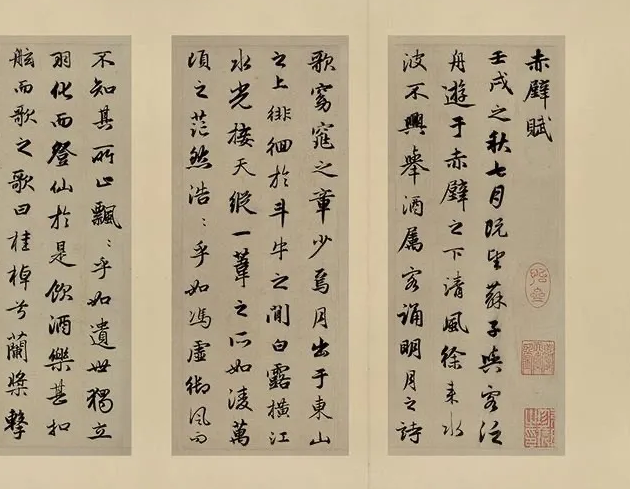 赤壁賦
壬戌之秋七月既望蘇子與客泛
舟遊于赤壁之下清風徐來水
波不興舉酒屬客誦明月之詩
歌窈窕之章少焉月出于東山
之上徘徊於斗牛之間白露橫江
水光接天縱一葦之所如淩萬
頃之茫然浩〻乎如馮虛御風而
不知其所止飄〻乎如遺世獨立
羽化而登仙於是飲酒樂甚扣
舷而歌之歌曰桂棹兮蘭槳擊